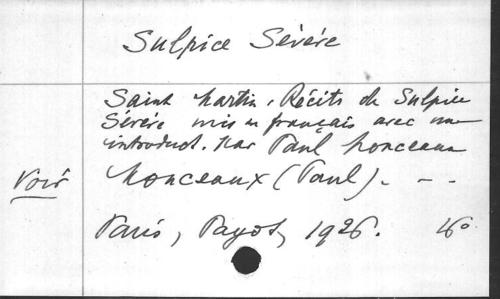 Sulpice Sévère
Saint Martin. Récits de Sulpice
Sévère mis en français avec une
introduct. par Paul Monceaux
Voir Monceaux (Paul). - -
Paris, Payot, 1926. 16º